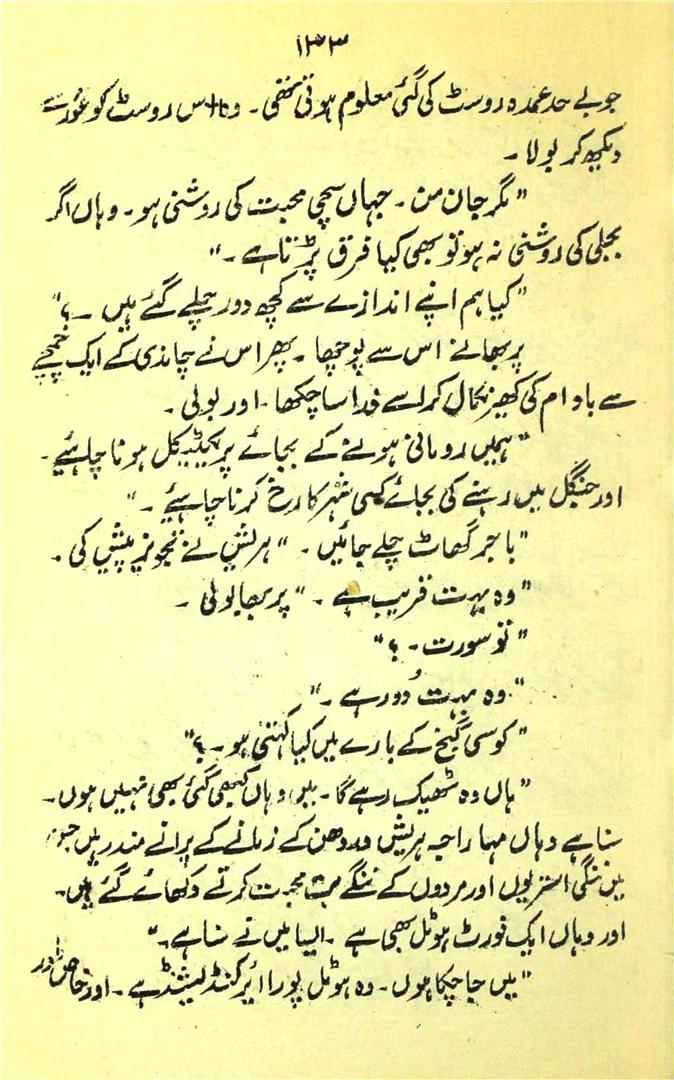 ۱۳۳
جو بے حد عمدہ روسٹ کی گئی معلوم ہوتی تھی۔ وہ اس روسٹ کو غور سے
دیکھ کر بولا۔
"مگر جانِ من۔ جہاں سچی محبت کی روشنی ہو۔ وہاں اگر
بجلی کی روشنی نہ ہو تو بھی کیا فرق پڑتا ہے۔"
"کیا ہم اپنے اندازے سے کچھ دور چلے گئے ہیں۔؟"
پربھا نے اس سے پوچھا۔ پھر اس نے چاندی کے ایک چمچے
سے بادام کی کھیر نکال کر اسے ذرا سا چکھا۔ اور بولی۔
"ہمیں رومانی ہونے کے بجائے پریکٹیکل ہونا چاہئے۔
اور جنگل میں رہنے کی بجائے کسی شہر کا رخ کرنا چاہئے۔"
"باجر گھاٹ چلے جائیں۔" ہریش نے تجویز پیش کی۔
"وہ بہت قریب ہے۔" پربھا بولی۔
"تو سورت۔؟"
"وہ بہت دُور ہے۔"
"کوسی گنج کے بارے میں کیا کہتی ہو۔؟"
"ہاں وہ ٹھیک رہے گا۔ میں وہاں کبھی گئی بھی نہیں ہوں۔
سنا ہے وہاں مہاراجہ ہریش وردھن کے زمانے کے پرانے مندر ہیں جن
میں ننگی استریوں اور مردوں کے ننگے بت محبت کرتے دکھائے گئے ہیں۔
اور وہاں ایک فورٹ ہوٹل بھی ہے۔ ایسا میں نے سنا ہے۔"
"میں جا چکا ہوں۔ وہ ہوٹل پورا ائیر کنڈیشنڈ ہے۔ اور خاص طور